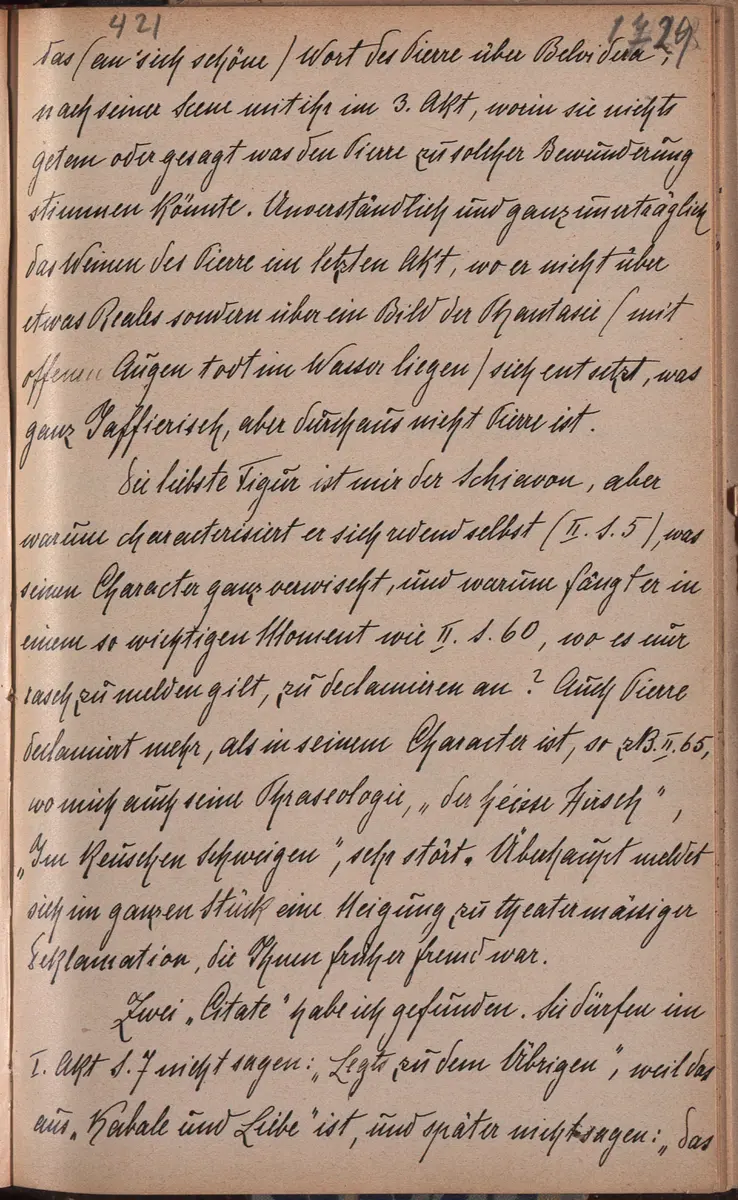 421
1729
das (an sich schöne) Wort des Pierre über Belvidera,
nach seiner Scene mit ihr im 3. Akt, worin sie nichts
getan oder gesagt was den Pierre zu solcher Bewunderung
stimmen könnte. Unverständlich und ganz unerträglich
das Weinen des Pierre im letzten Akt, wo er nicht über
etwas Reales sondern über ein Bild der Phantasie (mit
offenen Augen todt im Wasser liegen) sich entsetzt, was
ganz Jaffierisch, aber durchaus nicht Pierre ist.
Die liebste Figur ist mir der Schiavon, aber
warum characterisiert er sich redend selbst (II. S. 5), was
seinen Character ganz verwischt, und warum fängt er in
einem so wichtigen Moment wie II. S. 60, wo es nur
rasch zu melden gilt, zu declamieren an? Auch Pierre
declamiert mehr, als in seinem Character ist, so zB. II. 65,
wo mich auch seine Phraseologie, „der heisse Hirsch",
„Im Keuschen Schweigen", sehr stört. Überhaupt meldet
sich im ganzen Stück eine Neigung zu theatermässiger
Deklamation, die Ihnen früher fremd war.
Zwei „Citate" habe ich gefunden. Sie dürfen im
I. Akt S. 7 nicht sagen: „Legts zu dem Übrigen", weil das
aus „Kabale und Liebe" ist, und später nicht sagen: „das